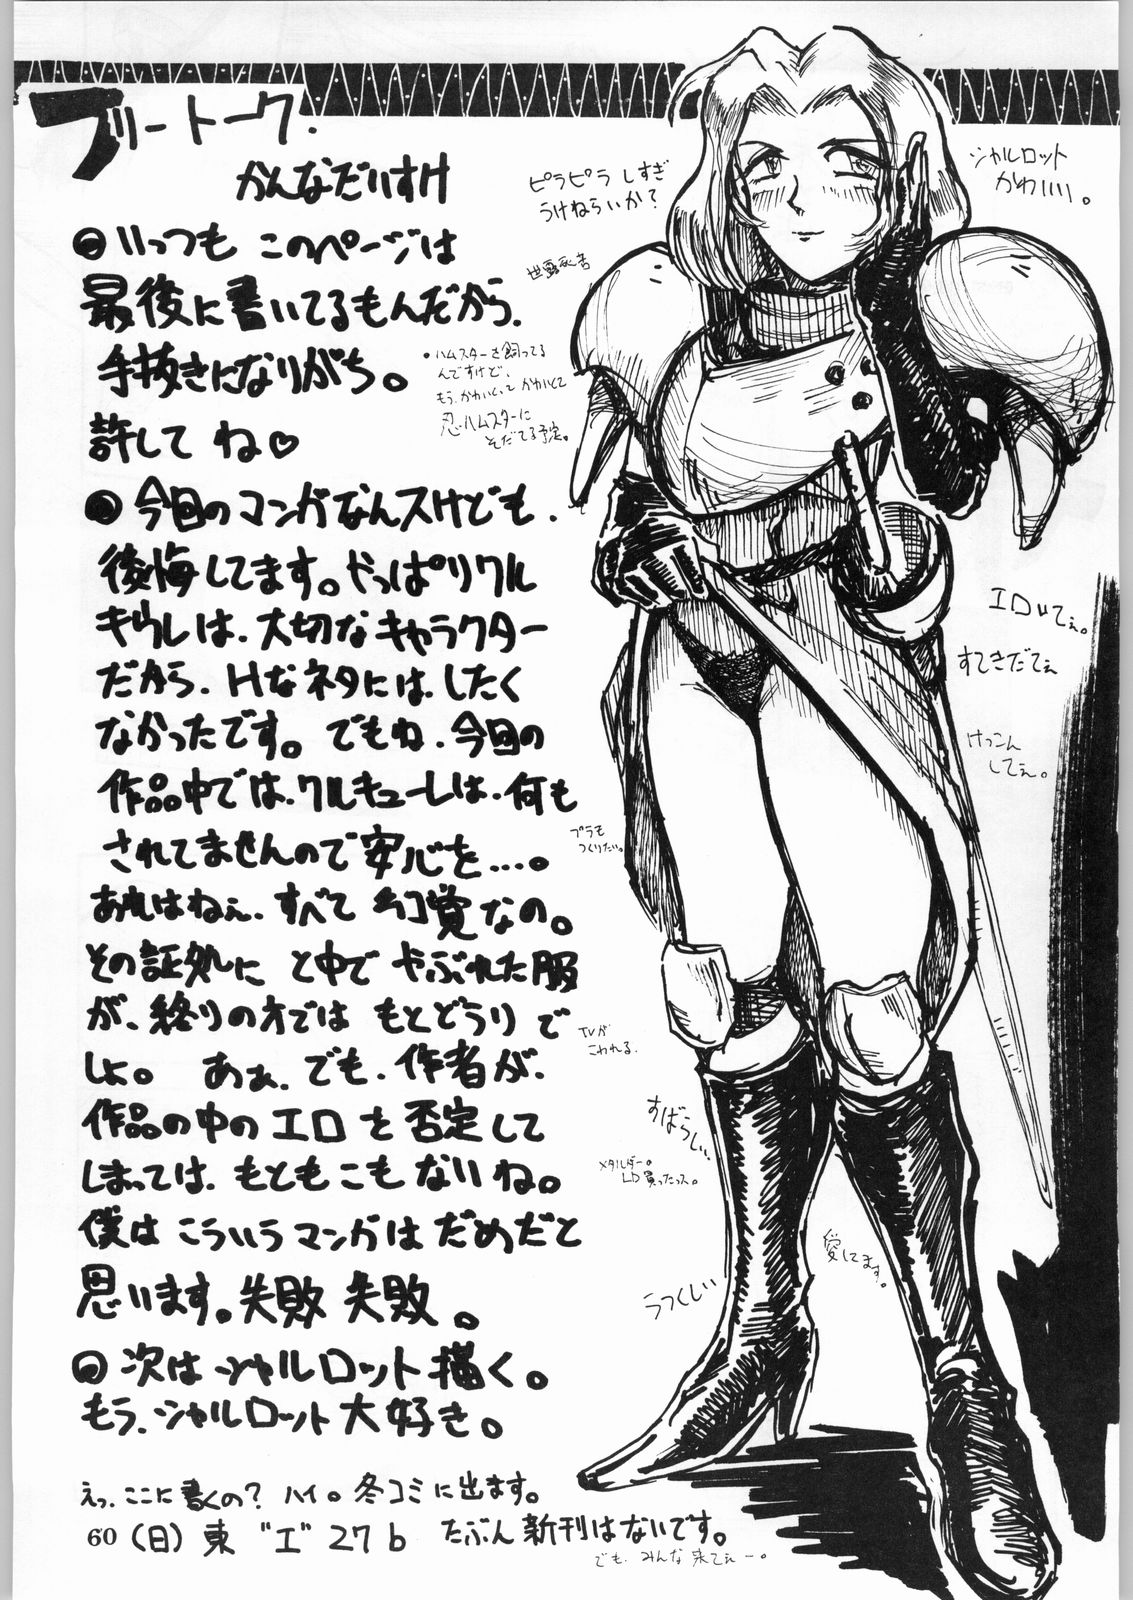 フリートーク.
かんなだいすけ
いつも このページは
最後に書いてるもんだから.
手抜きになりがち。
許して ね♡
今回のマンガなんスけども.
後悔してます。やっぱりクル
キゥレは.大切なキャラクター
だから.Hなネタには.したく
なかったです。でもね.今回の
作品中では.クルキューレは.何も
されてませんので安心を....。
あれはねぇ.すべて 幻覚なの。
その証処に と中で やぶれた服
が、終りの方では もとどうりで
しょ。 あぁ.でも.作者が.
作品の中の エロ を 否定して
しまっては.もともこもないね。
僕は こういうマンガは だめだと
思います。失敗 失敗。
次は シャルロット描く。
もう.シャルロット大好き。
えっ.ここに書くの? ハイ。冬コミに出ます。
60 (日) 東 "エ" 27b たぶん新刊はないです。
でも.みんな来てぇー。
ピラピラ しすぎ
うけねらいか?
シャルロット
かわいい。
・ハムスターを飼ってる
んですけど、
もう.かわいくって かわいくて
忍ハムスターに
そだてる予定。
エロいてぇ。
すてきだてぇ
けっこん
してぇ。
プラモ
つくりたい。
TVが
こわれる.
すばらしい.
メタルダー。
LD買ったっス。
愛してます。
うつくしい